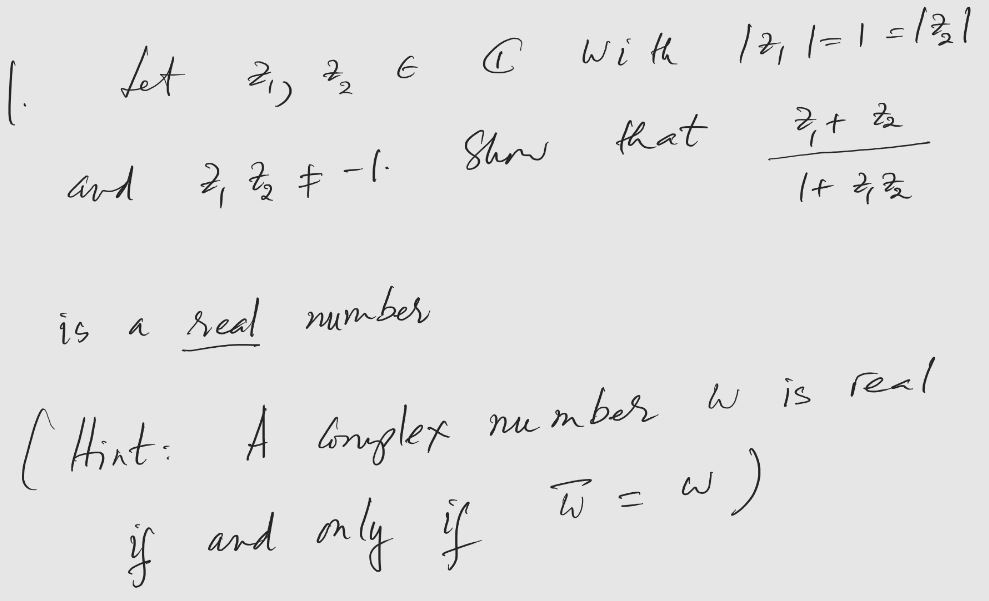 1. Let z₁, z₂ ∈ ℂ with |z₁| = 1 = |z₂|
and z₁ z₂ ≠ -1. Show that (z₁ + z₂)/(1 + z₁z₂)
is a real number
(Hint: A Complex number w is real
if and only if w̅ = w)